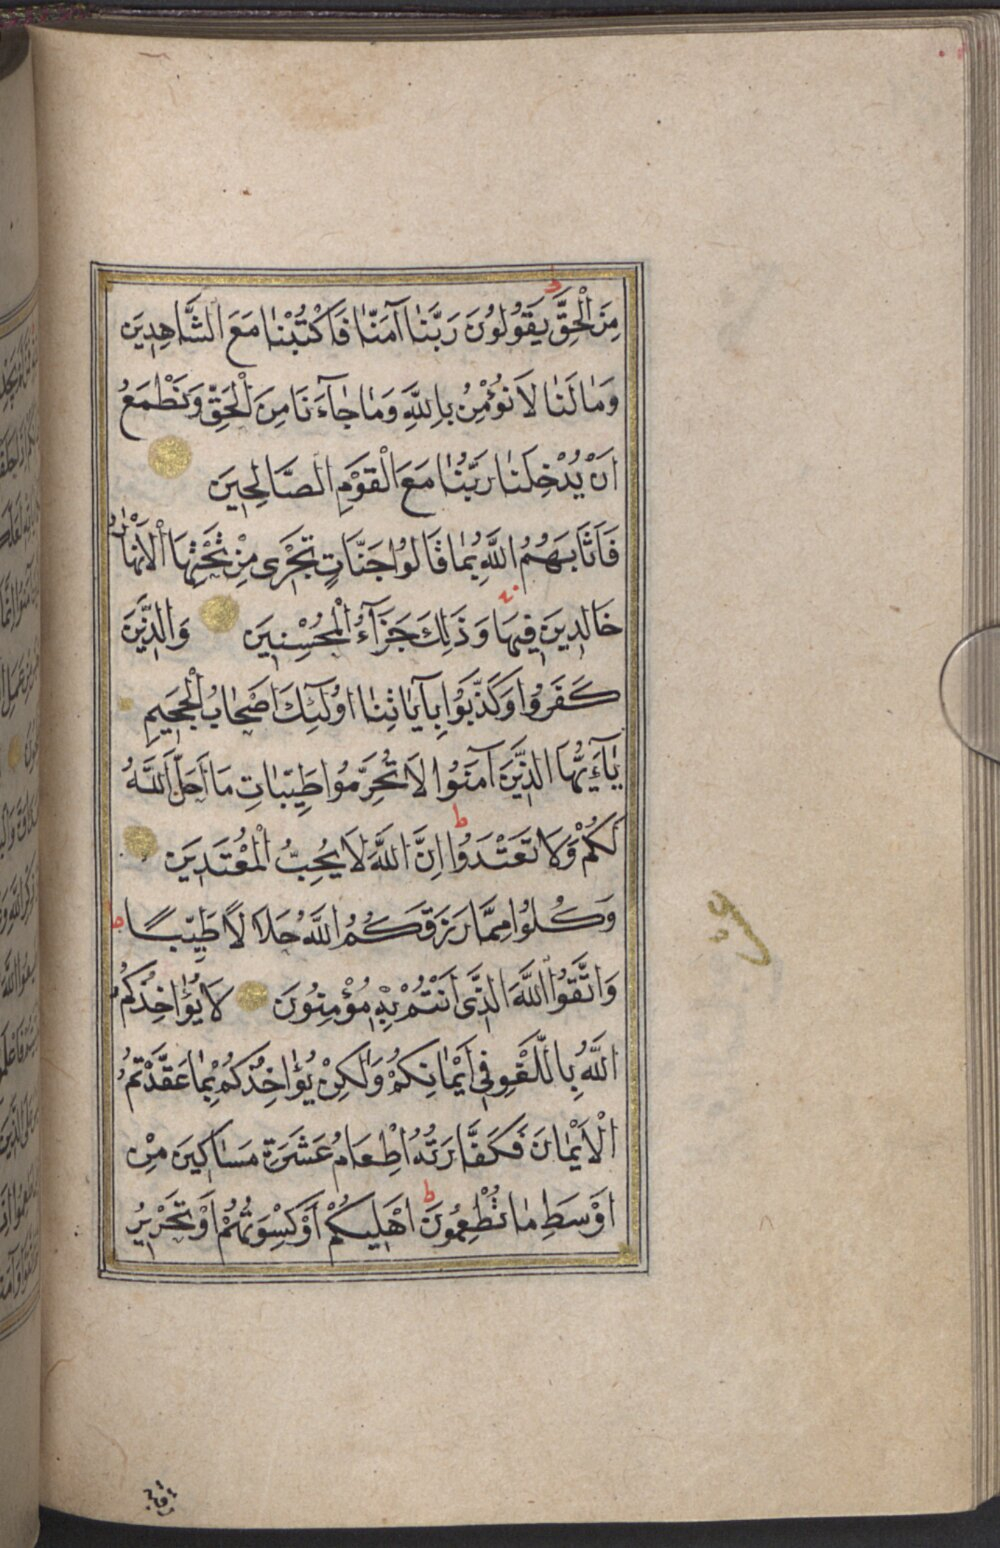 مِنَ الْحَقِّ يَقُولُونَ رَبَّنَا آمَنَّا فَاكْتُبْنَا مَعَ الشَّاهِدِينَ
وَمَا لَنَا لَا نُؤْمِنُ بِاللَّهِ وَمَا جَاءَنَا مِنَ الْحَقِّ وَنَطْمَعُ
اَنْ يُدْخِلَنَا رَبُّنَا مَعَ الْقَوْمِ الصَّالِحِينَ
فَاَثَابَهُمُ اللَّهُ بِمَا قَالُوا جَنَّاتٍ تَجْرِى مِنْ تَحْتِهَا الْاَنْهَارُ
خَالِدِينَ فِيهَا وَذَلِكَ جَزَآءُ الْمُحْسِنِينَ وَالَّذِينَ
كَفَرُوا وَكَذَّبُوا بِآيَاتِنَا اُولَئِكَ اَصْحَابُ الْجَحِيمِ
يَآ اَيُّهَا الَّذِينَ آمَنُوا لَا تُحَرِّمُوا طَيِّبَاتِ مَا اَحَلَّ اللَّهُ
لَكُمْ وَلَا تَعْتَدُوا اِنَّ اللَّهَ لَا يُحِبُّ الْمُعْتَدِينَ
وَكُلُوا مِمَّا رَزَقَكُمُ اللَّهُ حَلَالًا طَيِّبًا
وَاتَّقُوا اللَّهَ الَّذِى اَنْتُمْ بِهِ مُؤْمِنُونَ لَا يُؤَاخِذُكُمُ
اللَّهُ بِاللَّغْوِ فِى اَيْمَانِكُمْ وَلَكِنْ يُؤَاخِذُكُمْ بِمَا عَقَّدْتُمُ
الْاَيْمَانَ فَكَفَّارَتُهُ اِطْعَامُ عَشَرَةِ مَسَاكِينَ مِنْ
اَوْسَطِ مَا تُطْعِمُونَ اَهْلِيكُمْ اَوْ كِسْوَتُهُمْ اَوْ تَحْرِيرُ
رقبة